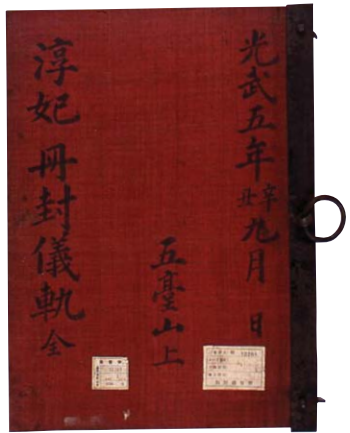 光武五年辛丑九月 日
五臺山上
淳妃冊封儀軌 全